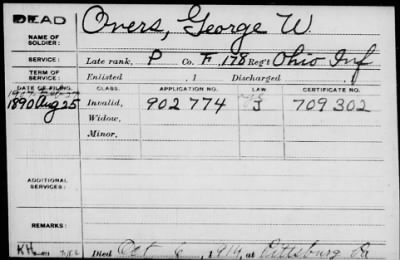 DEAD
Overs, George W.
NAME OF SOLDIER:
SERVICE: Late rank, P Co. F, 178 Reg't Ohio Inf
TERM OF SERVICE: Enlisted , 1 Discharged , 1
DATE OF FILING. CLASS. APPLICATION NO. LAW. CERTIFICATE NO.
1890 Aug 25 Invalid, 902 774 J 709 302
Widow,
Minor,
ADDITIONAL SERVICES:
REMARKS:
KH Died Oct 6, 1914, at Pittsburg Pa